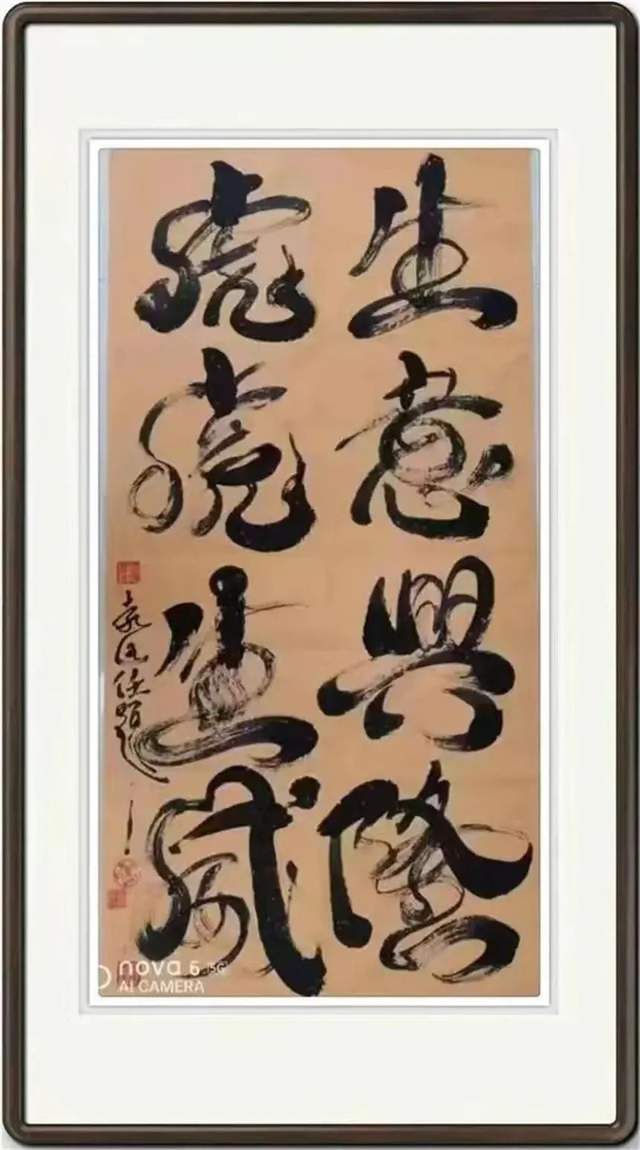 生意興隆
虎虎生威
nova 6 5G
AI CAMERA